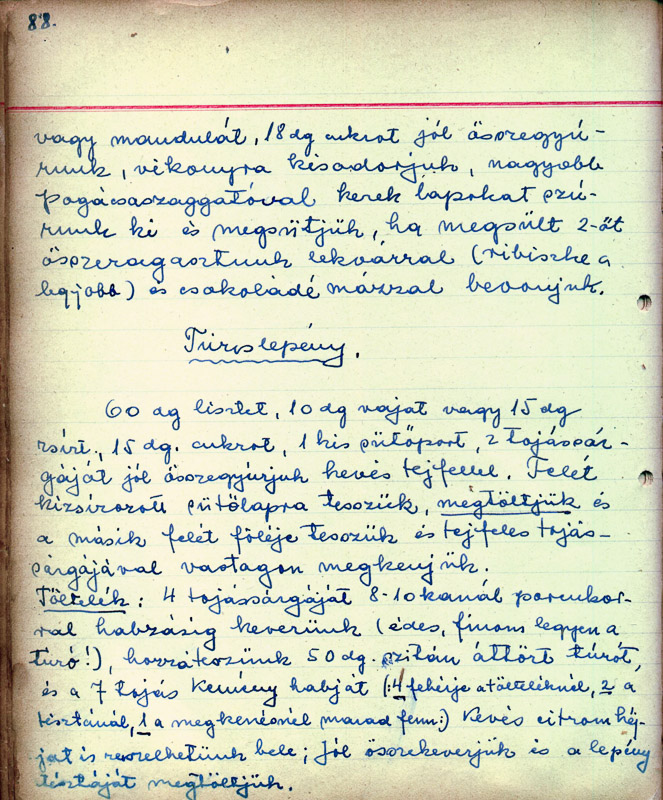 88.
vagy mandulát, 18 dg cukrot jól összegyú-
runk, vékonyra kisodorjuk, nagyobb
pogácsaszaggatóval kerek lapokat szú-
runk ki és megsütjük, ha megsült 2-öt
összeragasztunk lekvárral (ribiszke a
legjobb) és csokoládé mázzal bevonjuk.
Túrós lepény.
60 dg lisztet, 10 dg vajat vagy 15 dg
zsírt., 15 dg. cukrot, 1 kis sütőport, 2 tojássár-
gáját jól összegyúrjuk kevés tejfellel. Felét
kizsírozott sütőlapra tesszük, megtöltjük és
a másik felét föléje tesszük és tejfeles tojás-
sárgájával vastagon megkenjük.
Töltelék: 4 tojássárgáját 8-10 kanál porcukor-
ral habzásig keverünk (édes, finom legyen a
túró!), hozzáteszünk 50 dg. szitán áttört túrót,
és a 7 tojás kemény habját (:4 fehérje a tölteléknél, 2 a
tésztánál, 1 a megkenésnél marad fenn:) Kevés citromhéj-
jat is reszelhetünk bele; jól összekeverjük és a lepény
tésztáját megtöltjük.